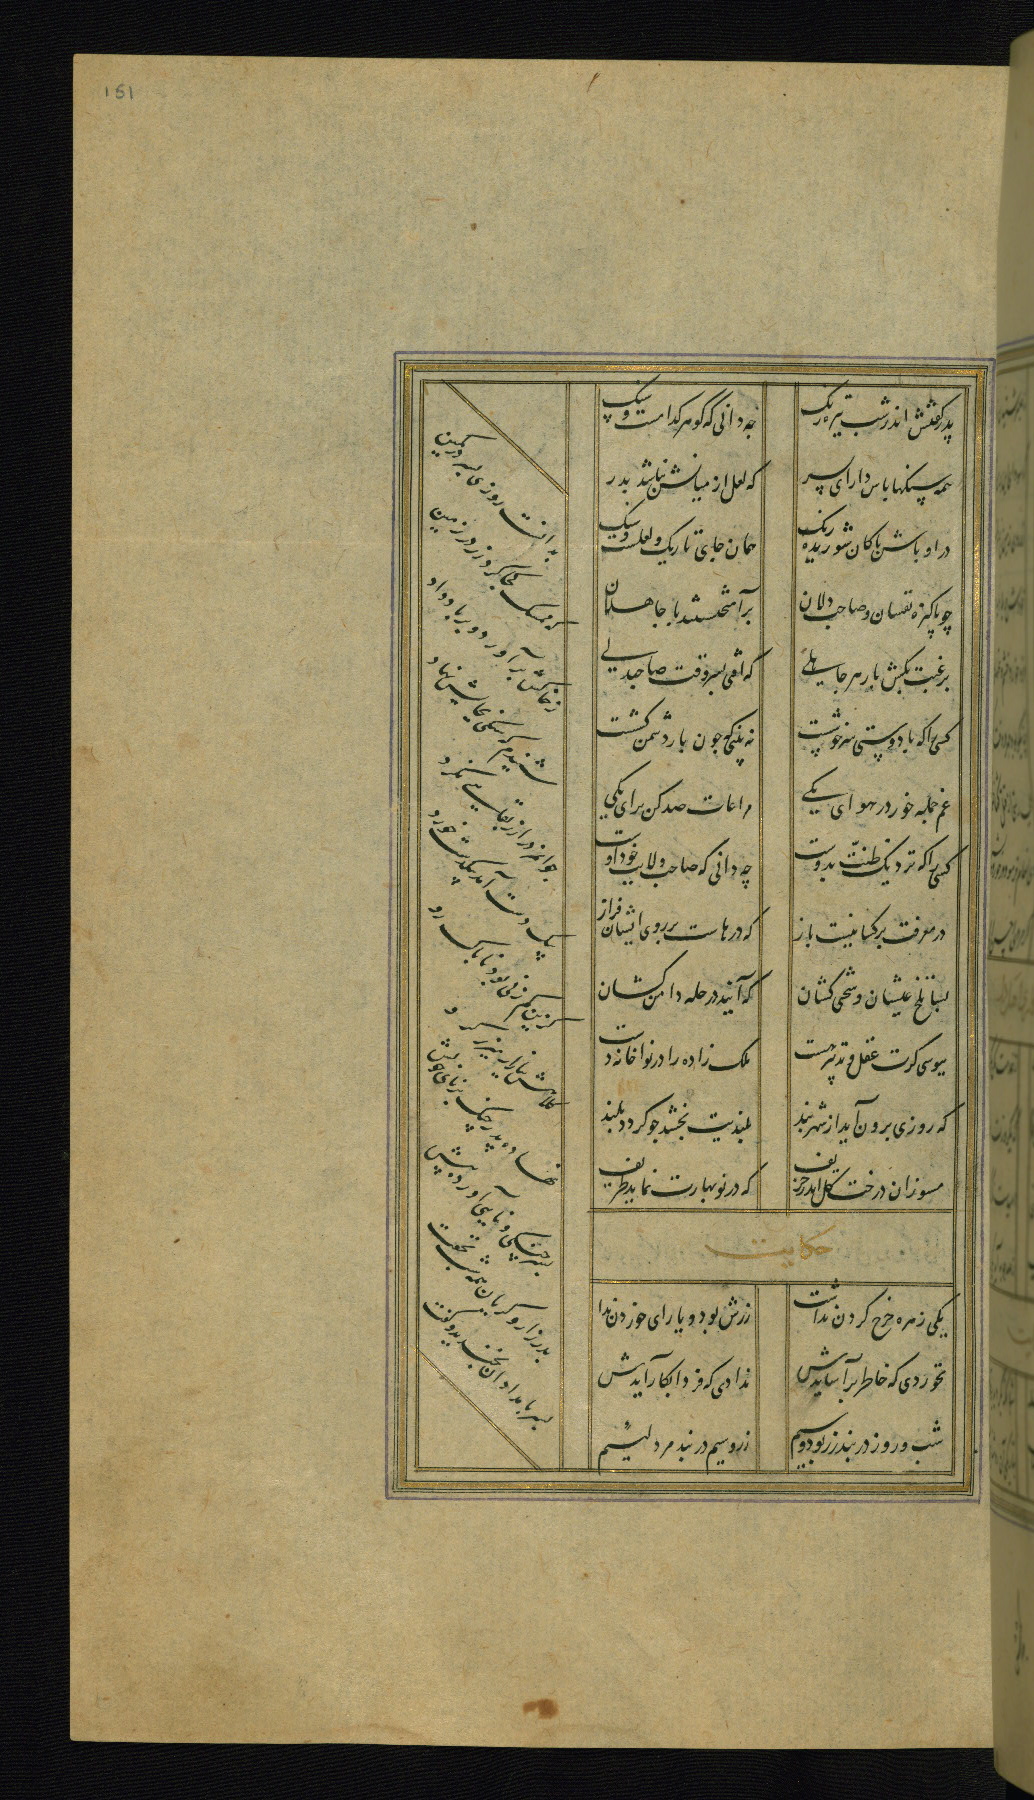 151
پدر گفتش اندر شب تیره رنک
چه دانی که گوهر کدامست و سنک
همه سنکها پاس دار ای پسر
که لعل از میانش نباشد بدر
در اوباش پاکان شوریده رنک
همان جای تاریک و لعلست و سنک
چو پاکیزه نفسان و صاحب دلان
برآمیختستند با جاهلان
برغبت بکش بار هر جاهلی
که افتی بسر وقت صاحبدلی
کسی را که با دوستی سر خوشست
نه بینی که چون بار دشمن کشست
غم جمله خور در هوای یکی
مراعات صد کن برای یکی
کسی را که نزدیک ظنت بدوست
چه دانی که صاحب ولایت خود اوست
در معرفت بر کسانیست باز
که درهاست بر روی ایشان فراز
بسا تلخ عیشان و سختی کشان
که آیند در حله دامن کشان
ببوسی گرت عقل و تدبیر هست
ملک زاده را در نواخانه دست
که روزی برون آید از شهر بند
بلندیت بخشد چو گردد بلند
مسوزان درخت گل اندر خریف
که در نوبهارت نماید ظریف
حکایت
یکی زهره خرج کردن نداشت
زرش بود و یارای خوردن نداشت
نخوردی که خاطر برآسایدش
ندادی که فردا بکار آیدش
شب و روز در بند زر بود و سیم
زر و سیم در بند مرد لئیم
بدانست روزی پسر در کمین
که ممسک کجا کرد زر در زمین
ز خاکش برآورد و بر باد داد
شنیدم که سنکی بجایش نهاد
جوانمرد را زر بقایی نکرد
بیک دست آمد بدیگر بخورد
کزین کم زنی بود ناپاک رو
کلاهش ببازار و میزر کرو
نهاده پدر چنک در نای خویش
پسر چنکی و نایی آورده پیش
پدر زار و گریان همه شب نخفت
پسر بامدادان بخندید و گفت